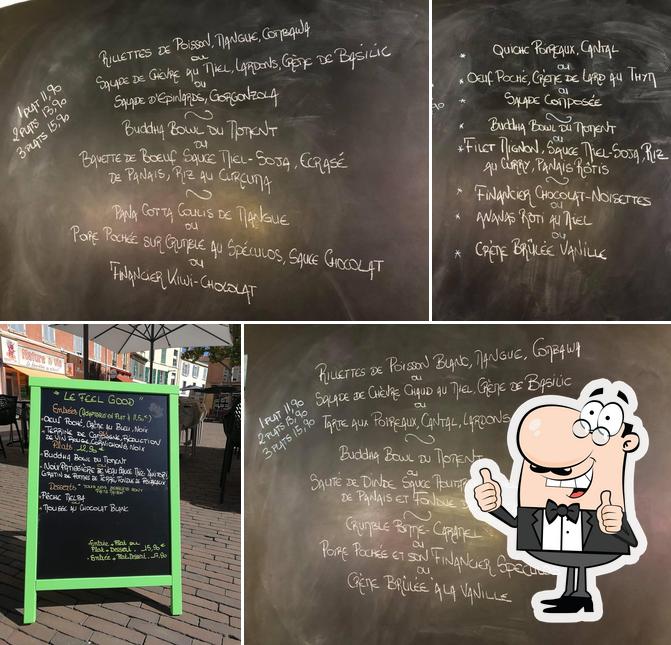 1 PLAT 11,90
2 PLATS 13,90
3 PLATS 15,90
RILLETTES DE POISSON, MANGUE, COMBAWA
OU
SALADE DE CHÈVRE AU MIEL, LARDONS, CRÈME DE BASILIC
OU
SALADE D'EPINARDS, GORGONZOLA
~
BUDDHA BOWL DU MOMENT
OU
BAVETTE DE BOEUF SAUCE MIEL-SOJA, ECRASÉ
DE PANAIS, RIZ AU CURCUMA
~
PANA COTTA COULIS DE MANGUE
OU
POIRE POCHÉE SUR CRUMBLE AU SPÉCULOS, SAUCE CHOCOLAT
OU
FINANCIER KIWI-CHOCOLAT
* QUICHE POIREAUX, CANTAL
OU
* OEUF POCHÉ, CRÈME DE LARD AU THYM
OU
* SALADE COMPOSÉE
~
* BUDDHA BOWL DU MOMENT
OU
* FILET MIGNON, SAUCE MIEL-SOJA, RIZ
AU CURRY, PANAIS RÔTIS
~
* FINANCIER CHOCOLAT-NOISETTES
OU
* ANANAS RÔTI AU MIEL
OU
* CRÈME BRÛLÉE VANILLE
Nature & Vie
" LE FEEL GOOD "
Entrées
- OEUF POCHÉ, CRÈME AU BLEU, NOIX
- TERRINE DE CAMPAGNE, RÉDUCTION
DE VIN ROUGE, CORNICHONS, NOIX
Plats 12,90 €
- BUDDHA BOWL DU MOMENT
- NOIX PATISSIÈRE DE VEAU SAUCE
GRATIN DE POMMES DE TERRE, FONDUE DE POIREAUX
Desserts
- PÊCHE MELBA
- MOUSSE AU CHOCOLAT BLANC
Entrée + Plat ou
Plat + Dessert 15,90 €
Entrée + Plat + Dessert 17,90
1 PLAT 11,90
2 PLATS 13,90
3 PLATS 15,90
RILLETTES DE POISSON BLANC, MANGUE, COMBAWA
OU
SALADE DE CHÈVRE CHAUD AU MIEL, CRÈME DE BASILIC
OU
TARTE AUX POIREAUX, CANTAL, LARDONS
~
BUDDHA BOWL DU MOMENT
OU
SAUTÉ DE DINDE SAUCE
DE PANAIS ET FONDUE
~
CRUMBLE POMME-CARAMEL
OU
POIRE POCHÉE ET SON FINANCIER SPECUL
OU
CRÈME BRÛLÉE À LA VANILLE